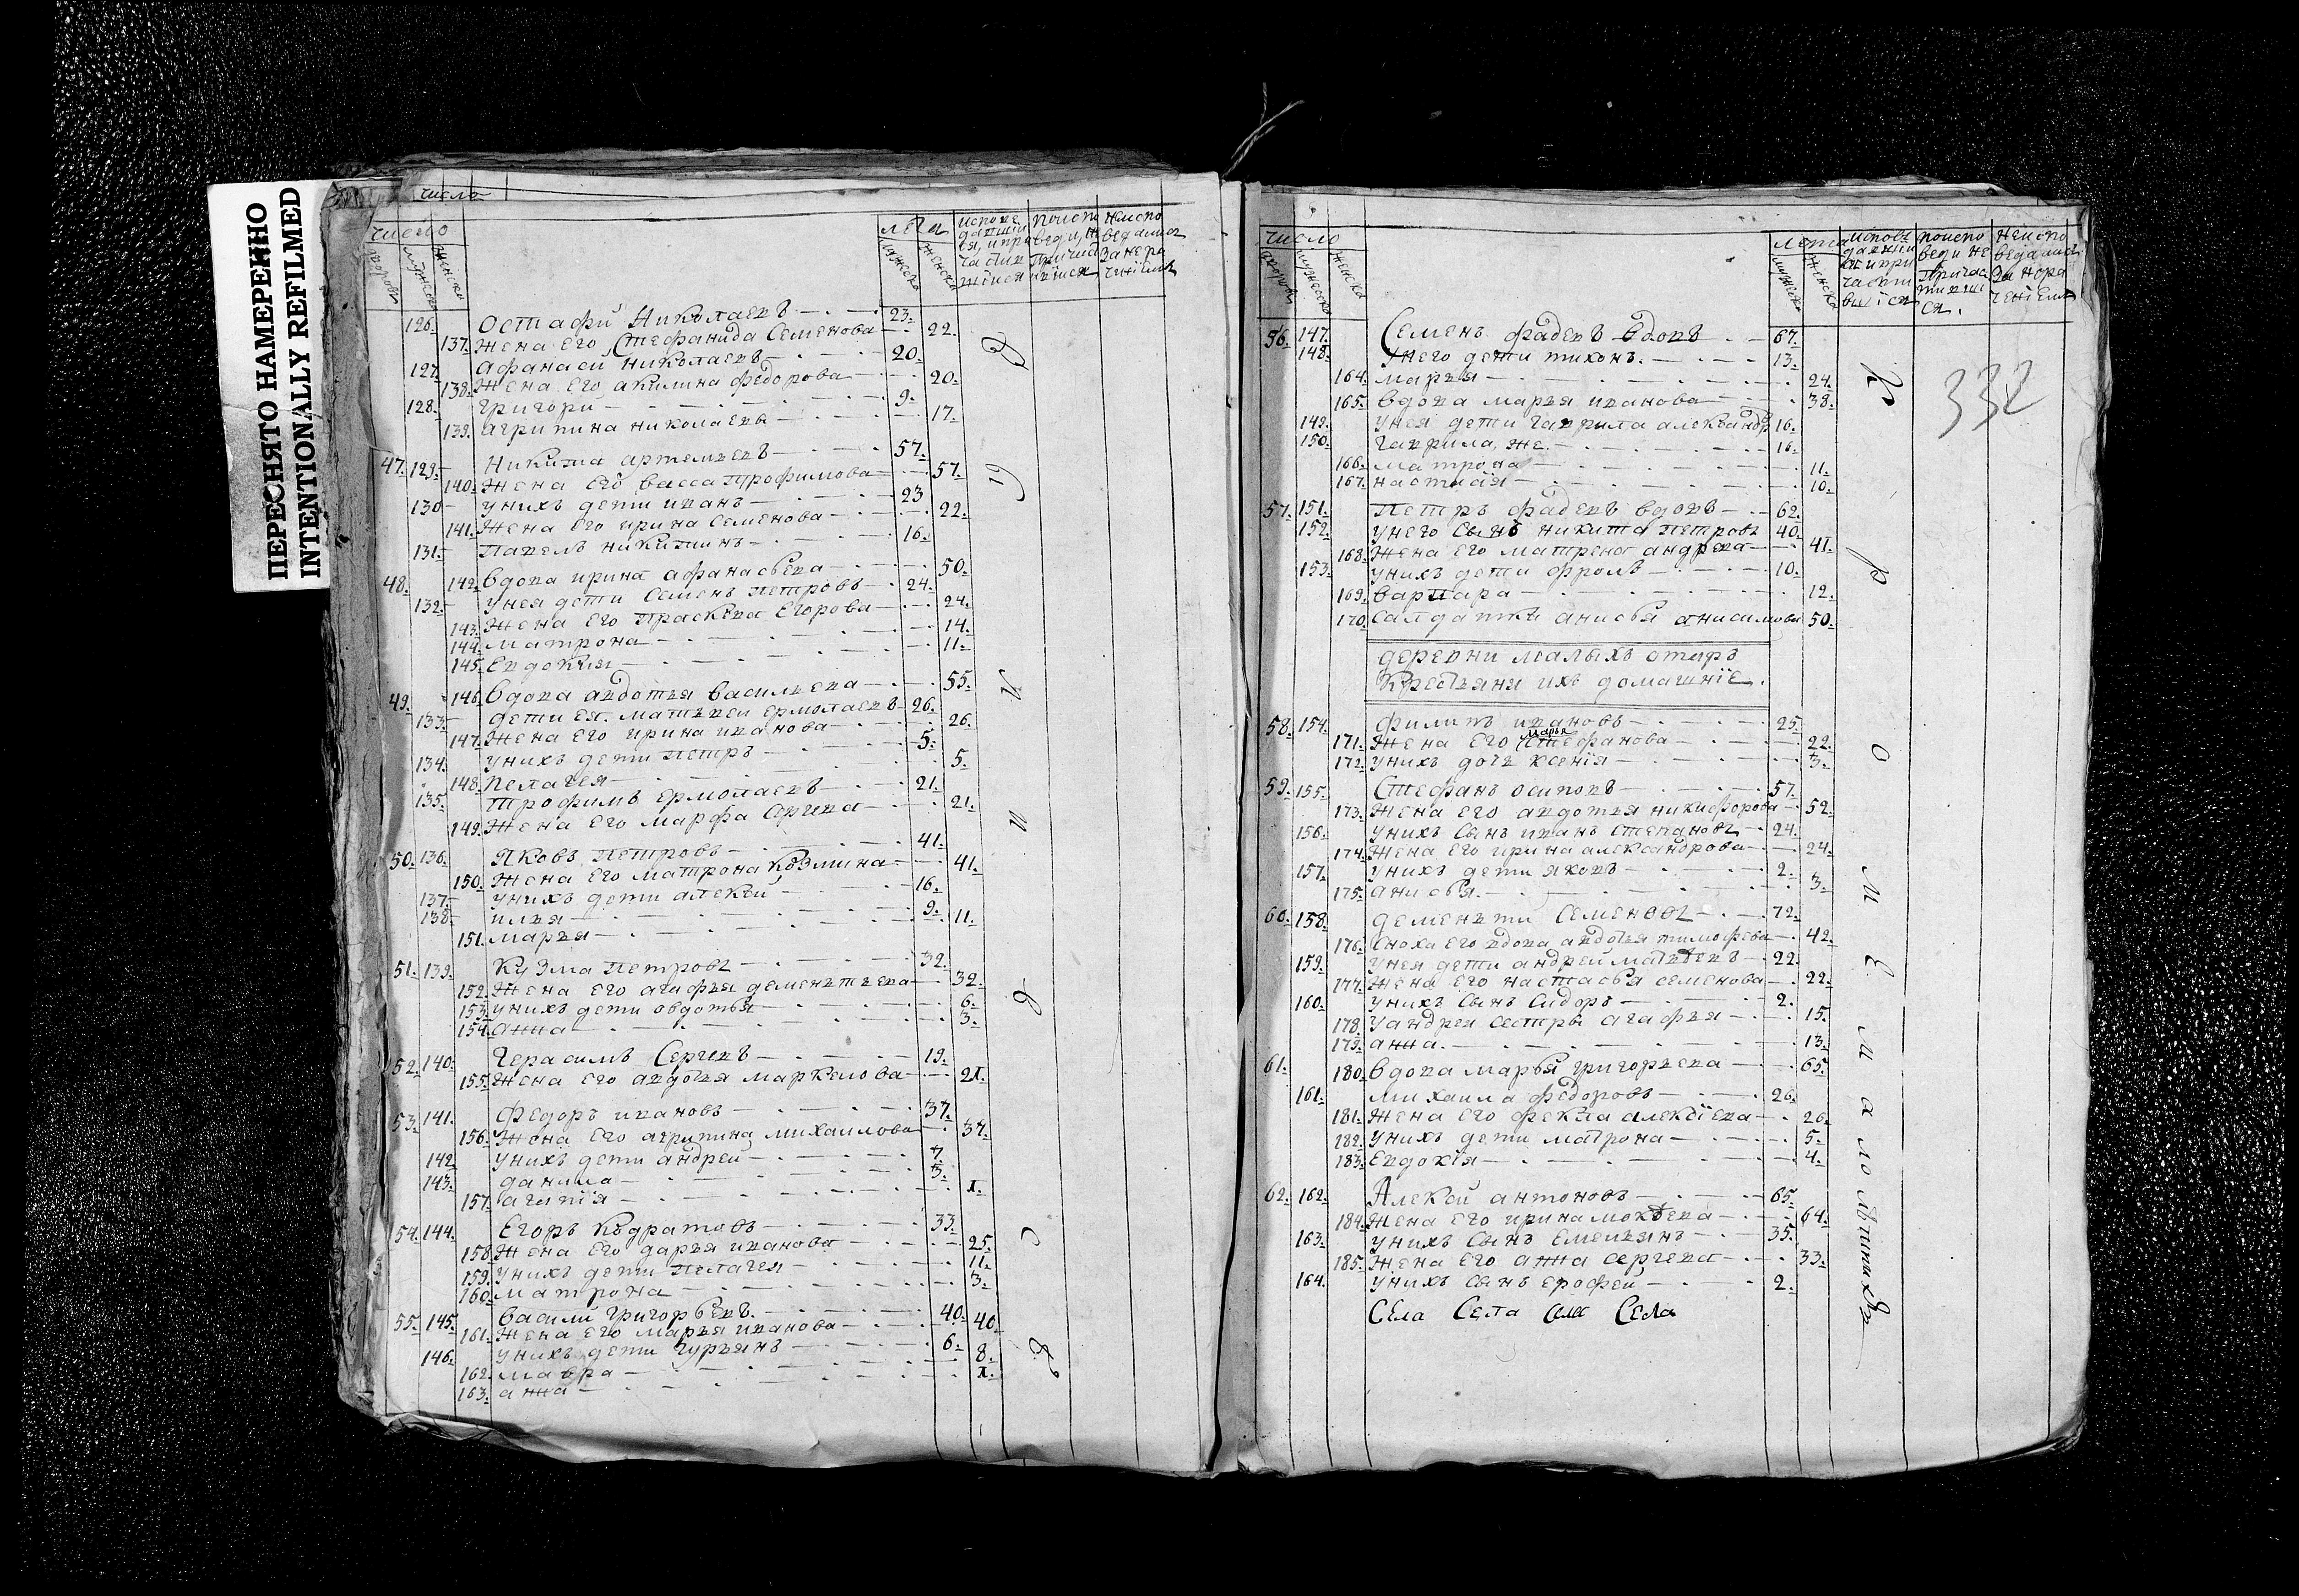 ПЕРЕСНЯТО НАМЕРЕННО
INTENTIONALLY REFILMED
число
число лѣта
126. Остафӥ Николаевъ 23.
137. Жена Его Стефанида Семенова 22.
127. афанасӥ николаевъ 20.
138. Жена Его акилина федорова 20.
128. григори 9.
139. агрипина николаева 17.
47. 129. Никита артемьевъ 57.
140. Жена Его васса трофимова 57.
130 унихъ дети иванъ 23
141. Жена Его ирина Семенова 22.
131. павелъ никитинъ 16.
48. 142. вдова ирина афанасьева 50.
132. унея дети Семенъ петровъ 24.
143. Жена Его праскева Егорова 24.
144. матрона 14.
145. Евдокия 11.
49. 146. вдова авдотья васильева 55.
133. дети ея матвеи ермолаевъ 26.
147. Жена Его ирина иванова 26.
134. унихъ дети петръ 5.
148. пелагея 5.
135. трофимъ ермолаевъ 21.
149. Жена Его марфа Сергиева 21.
50. 136. Яковъ петровъ 41.
150. Жена Его матрона козмина 41.
137. унихъ дети алекѣй 16.
138. илья 9.
151. марья 11.
51. 139. Кузма петровъ 32.
152. Жена Его агафья дементьева 32.
153. унихъ дети овдотья 6.
154. анна 3.
52. 140. Герасимъ Сергиевъ 19.
155. Жена Его авдотья маркелова 21.
53. 141. Федоръ ивановъ 37.
156. Жена Его агрипина михаилова 37.
142. унихъ дети андреи 7.
143. данила 3.
157. агапїя 1.
54. 144. Егоръ Кодратовъ 33.
158. Жена Его дарья иванова 25.
159. Унихъ дети пелагея 11.
160. матрона 3.
55. 145. василӥ григорьевъ 40.
161. Жена Его марья иванова 40.
146. унихъ дети гурьянъ 6.
162. мавра 8.
163. анна 1.
число лета
332
56. 147. Семенъ фадеевъ вдовъ 67.
148. Унего дети тихонъ 13.
164. марья 24.
165. вдова марья иванова 38.
149. унея дети гаврила александр 16.
150. гаврила же 16.
166. матрона 11.
167. настасїя 10.
57. 151. Петръ фадеевъ вдовъ 62.
152. унего Сынъ никита петровъ 40.
168. Жена Его матрена андреева 41.
153. унихъ дети фролъ 10.
169. варвара 12.
170. Салдатка анисья анисимова 50.
деревни малыхъ отаръ
крестьяни ихъ домашнїе.
58. 154. филипъ ивановъ 25.
171. Жена Его марья Стефанова 22.
172. Унихъ дочь ксенїя 3.
59. 155. Стефанъ осиповъ 57.
173. Жена Его авдотья никифорова 52.
156. унихъ Сынъ иванъ степановъ 24.
174. Жена Его ирина александрова 24.
157. унихъ дети яковъ 2.
175. анисья 3.
60. 158. дементи Семеновъ 72.
176. Сноха Его вдова авдотья тимофеева 42.
159. унея дети андреи матвѣевъ 22.
177. Жена Его настасья семенова 22.
160. унихъ Сынъ Сидоръ 2.
178. уандреи сестры агафья 15.
179. анна. 13.
61. 180. вдова марья григорьева 65.
161. михаила федоровъ 26.
181. Жена Его фекла алекѣїева 26.
182. Унихъ дети матрона 5.
183. Евдокїя 4.
62. 162. Алекѣй антоновъ 65.
184. Жена Его ирина мокѣева 64.
163. унихъ Сынъ Емельянъ 35.
185. Жена Его анна Сергеева 33.
164. Унихъ Сынъ Ерофей 2.
Села Села Села